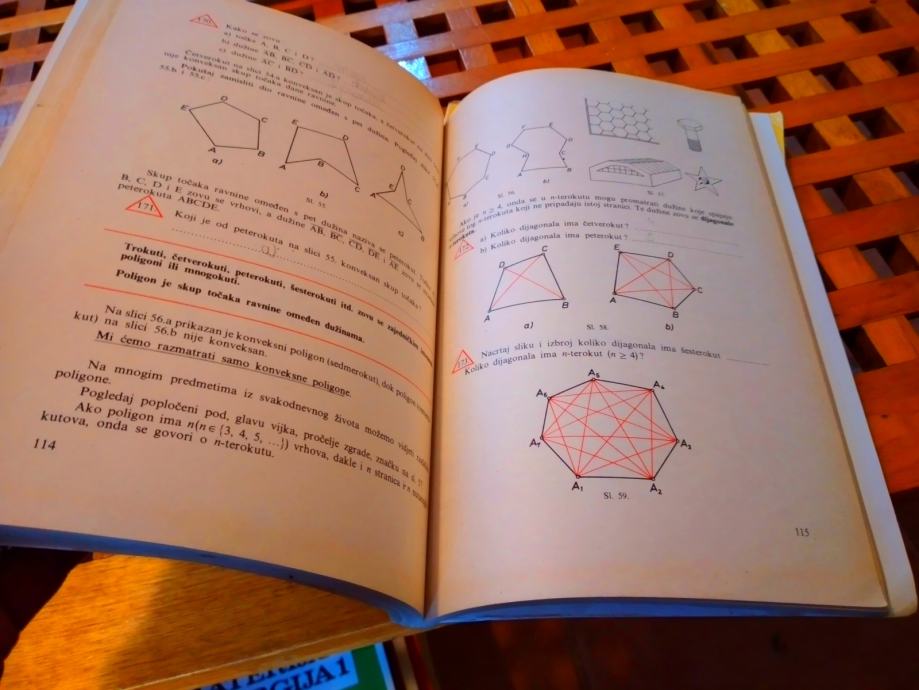 170
Kako se zovu
a) točke A, B, C i D?
b) dužine AB, BC, CD i AD?
c) dužine AC i BD?
Četverokut na slici 54.a konveksan je skup točaka, a četverokut na slici
nije konveksan skup točaka dane ravnine.
Pokušaj zamisliti dio ravnine omeđen s pet dužina. Pogledaj
55.b i 55.c
E D C A B
a)
E D B A C
b)
D E C A B
c)
Sl. 55.
Skup točaka ravnine omeđen s pet dužina naziva se peterokut.
B, C, D i E zovu se vrhovi, a dužine AB, BC, CD, DE i AE zovu se
peterokuta ABCDE.
171
Koji je od peterokuta na slici 55. konveksan skup točaka?
a)
Trokuti, četverokuti, peterokuti, šesterokuti itd. zovu se zajedničkim imenom
poligoni ili mnogokuti.
Poligon je skup točaka ravnine omeđen dužinama.
Na slici 56.a prikazan je konveksni poligon (sedmerokut), dok poligon
kut) na slici 56.b nije konveksan.
Mi ćemo razmatrati samo konveksne poligone.
Na mnogim predmetima iz svakodnevnog života možemo vidjeti
poligone.
Pogledaj popločeni pod, glavu vijka, pročelje zgrade, značku na sl. 57
Ako poligon ima n(n∈{3, 4, 5, ...}) vrhova, dakle i n stranica i n
kutova, onda se govori o n-terokutu.
114
b)
Sl. 56.
Sl. 57.
Ako je n ≥ 4, onda se u n-terokutu mogu promatrati dužine koje spajaju
n-terokuta koji ne pripadaju istoj stranici. Te dužine zovu se dijagonale
n-terokuta.
172
a) Koliko dijagonala ima četverokut?
b) Koliko dijagonala ima peterokut?
D C A B
a)
E D C A B
b)
Sl. 58.
173
Nacrtaj sliku i izbroj koliko dijagonala ima šesterokut
Koliko dijagonala ima n-terokut (n ≥ 4)?
A₅ A₄
A₆
A₇ A₃
A₁ A₂
Sl. 59.
115
GIJA 1